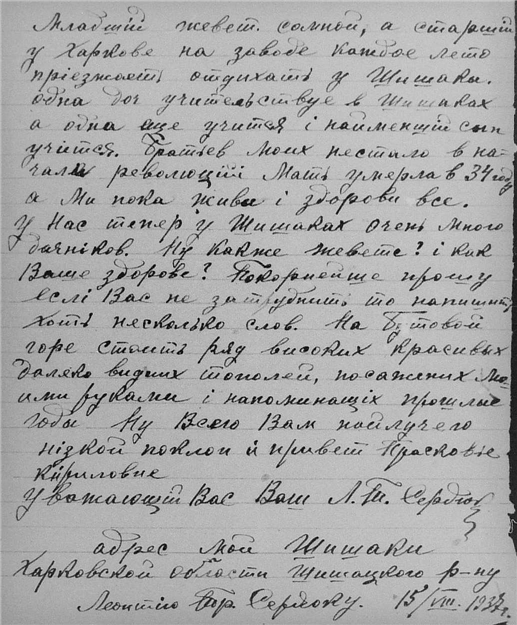 Младший жевет сомной, а старший
у Харкове на заводе каждое лето
приезжают отдихать у Шишаки.
одна доч учительствует в Шишаках
а одна ище учится і найменшій сын
учится. Братьев моих нестало в на-
чали революций Мать умерла в 34 году
а Ми пока живи і здорови все.
у Нас тепер у Шишаках очень много
дачніков. Ну какже жевете? і как
Ваше здоровє? Покорнейше прошу
еслі Вас не затруднить то напишить
хоть несколько слов. На Бутовой
горе стоить ряд високих красивых
далеко видних тополей, посажених мо-
ими руками і напоминающіх прошлые
годы Ну Всего Вам найлучего
нізкой поклон и привет Прасковье
Кириловне
уважающий Вас Ваш Л. Т. Сердюк
адрес мой Шишаки
Харковской области Шишацкого р-ну
Леонтію Сердюку. 15/VIII.